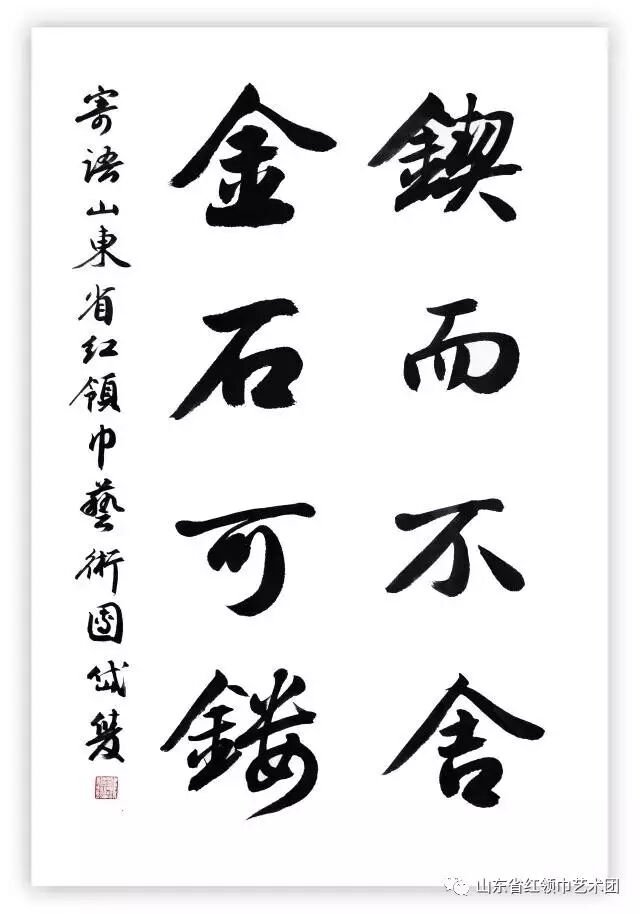 鍥而不舍
金石可鏤
寄语山東省红領巾藝術團岱
山东省红领巾艺术团